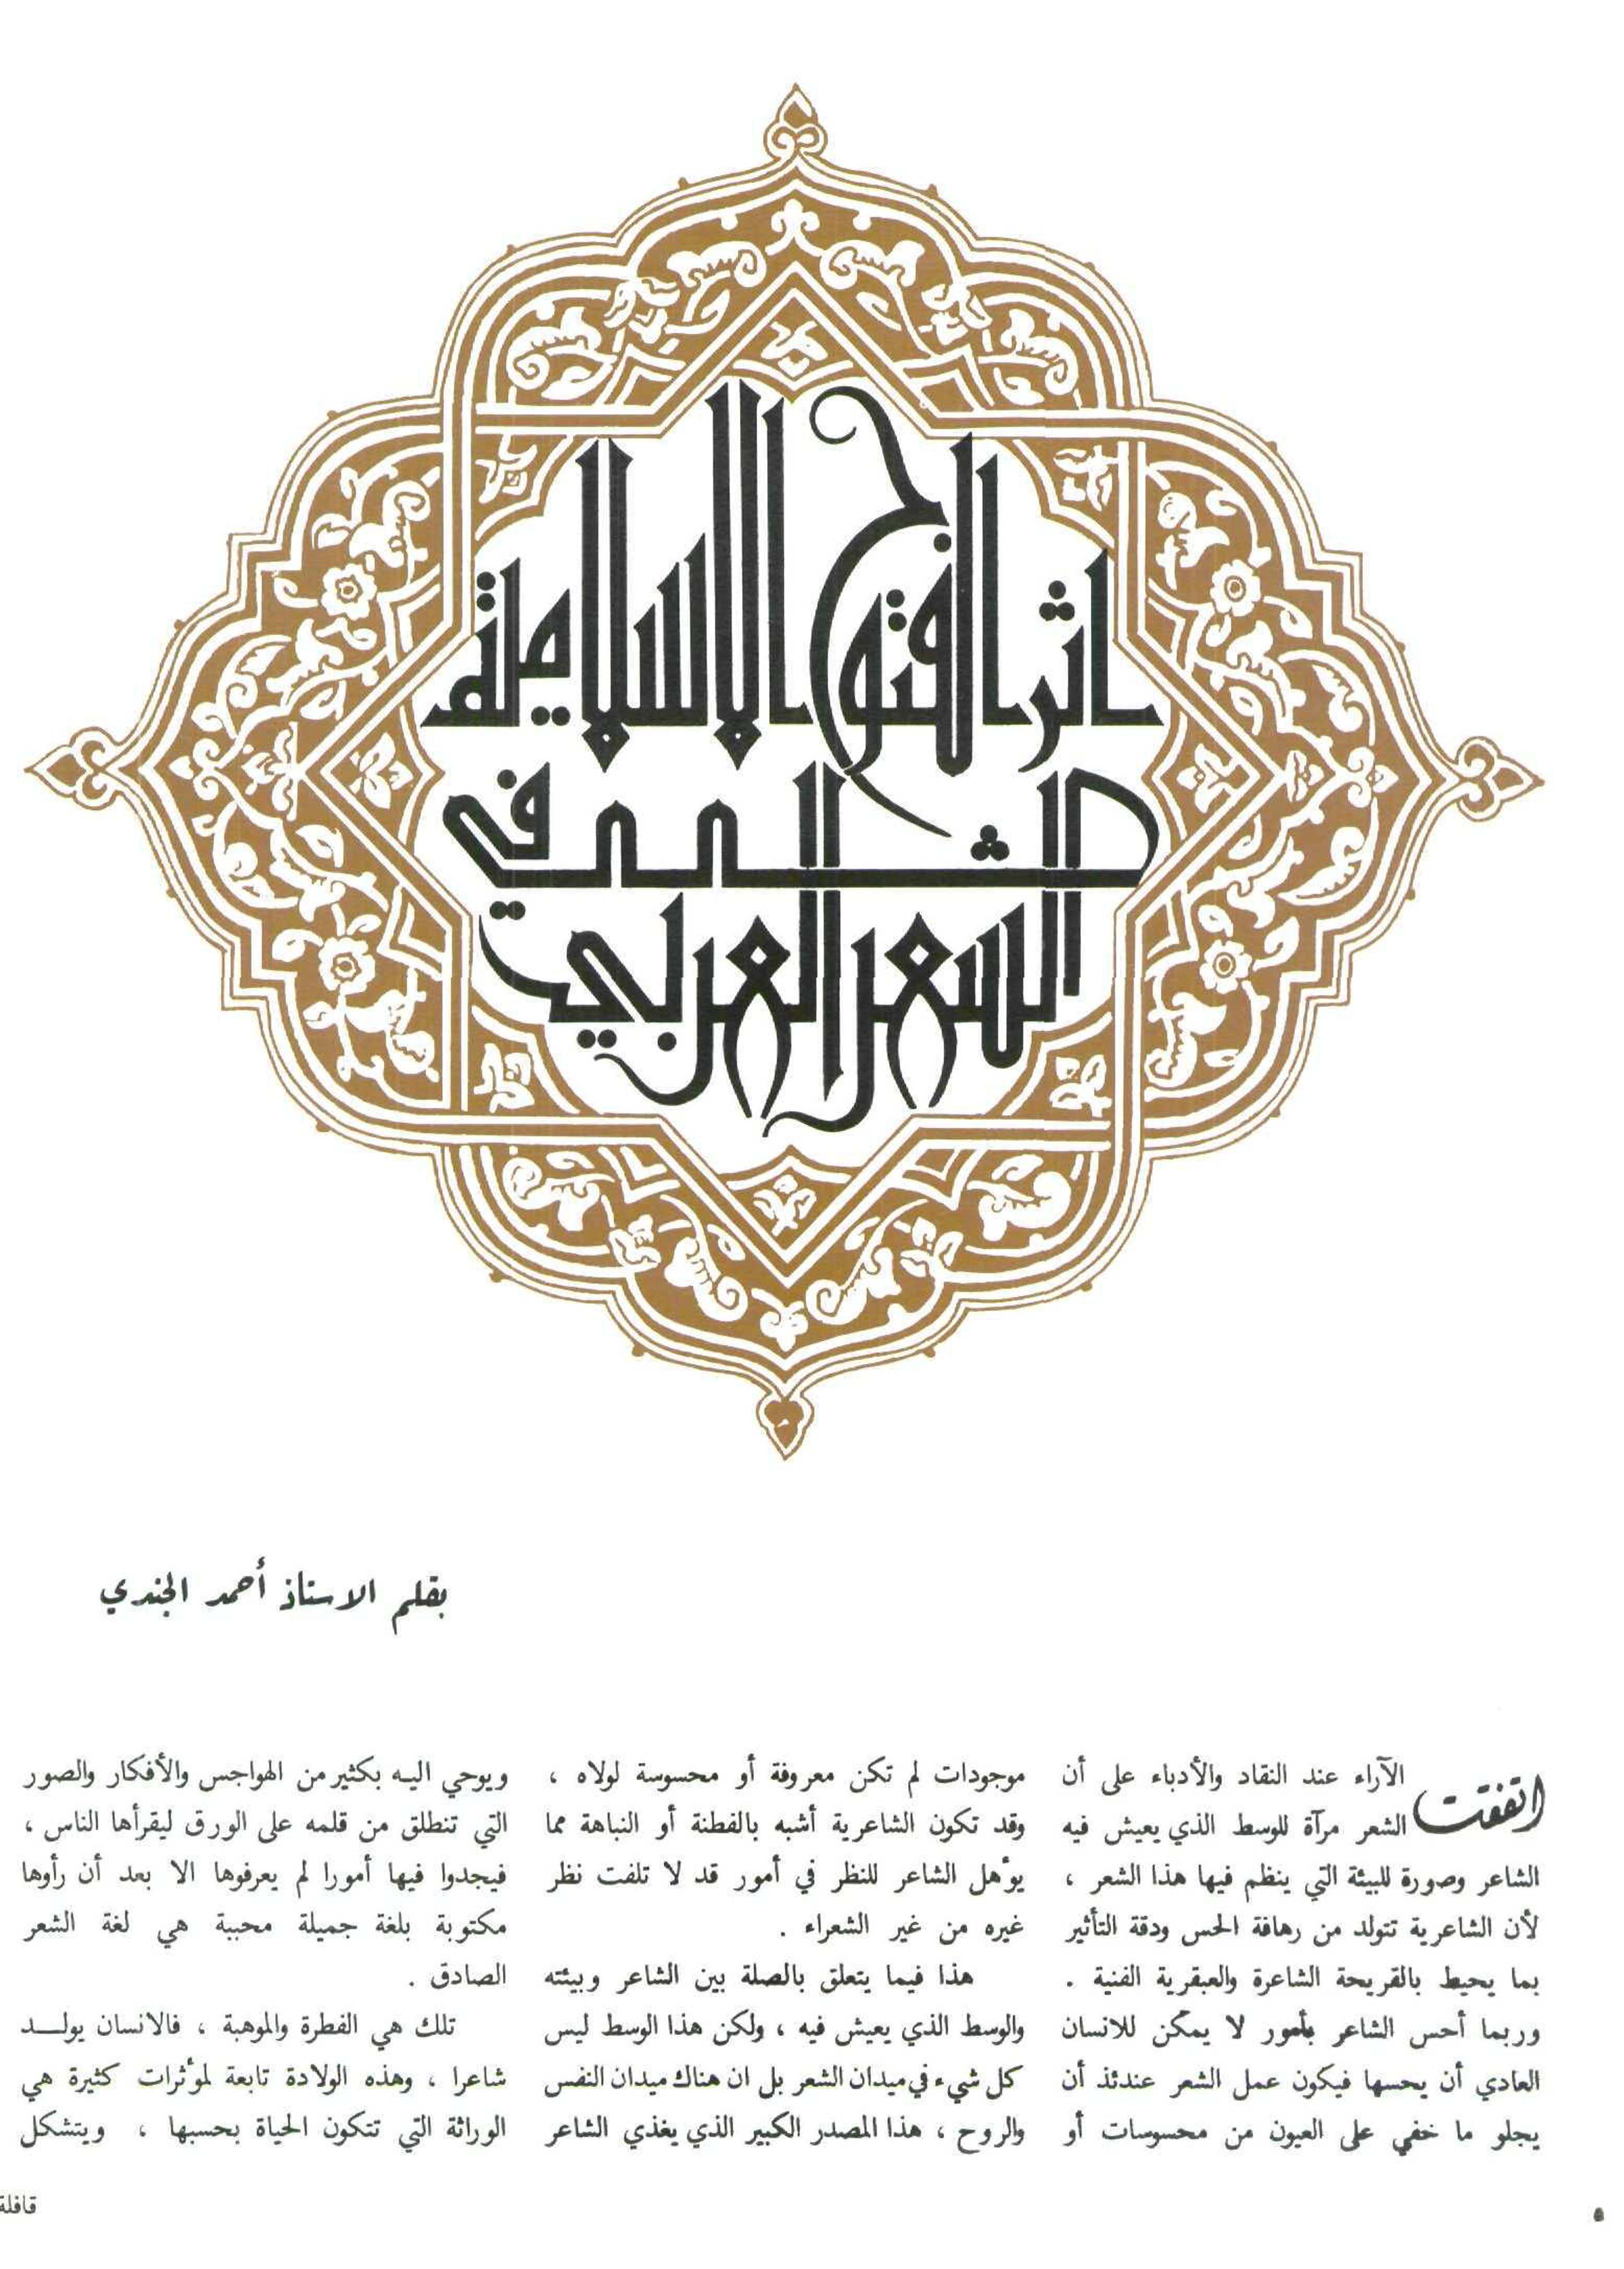 اثر الفتوح الاسلامية
في
الشعر العربي
بقلم الاستاذ أحمد الجندي
اتفقت الآراء عند النقاد والأدباء على أن
الشعر مرآة للوسط الذي يعيش فيه
الشاعر وصورة للبيئة التي ينظم فيها هذا الشعر ،
لأن الشاعرية تتولد من رهافة الحس ودقة التأثير
بما يحيط بالقريحة الشاعرة والعبقرية الفنية .
وربما أحس الشاعر بأمور لا يمكن للانسان
العادي أن يحسها فيكون عمل الشعر عندئذ أن
يجلو ما خفي على العيون من محسوسات أو
موجودات لم تكن معروفة أو محسوسة لولاه ،
وقد تكون الشاعرية أشبه بالفطنة أو النباهة مما
يؤهل الشاعر للنظر في أمور قد لا تلفت نظر
غيره من غير الشعراء .
هذا فيما يتعلق بالصلة بين الشاعر وبيئته
والوسط الذي يعيش فيه ، ولكن هذا الوسط ليس
كل شيء في ميدان الشعر بل ان هناك ميدان النفس
والروح ، هذا المصدر الكبير الذي يغذي الشاعر
ويوحي اليه بكثير من الهواجس والأفكار والصور
التي تنطلق من قلمه على الورق ليقرأها الناس ،
فيجدوا فيها أمورا لم يعرفوها الا بعد أن رأوها
مكتوبة بلغة جميلة محببة هي لغة الشعر
الصادق .
تلك هي الفطرة والموهبة ، فالانسان يولد
شاعرا ، وهذه الولادة تابعة لمؤثرات كثيرة هي
الوراثة التي تتكون الحياة بحسبها ، ويتشكل
قافلة